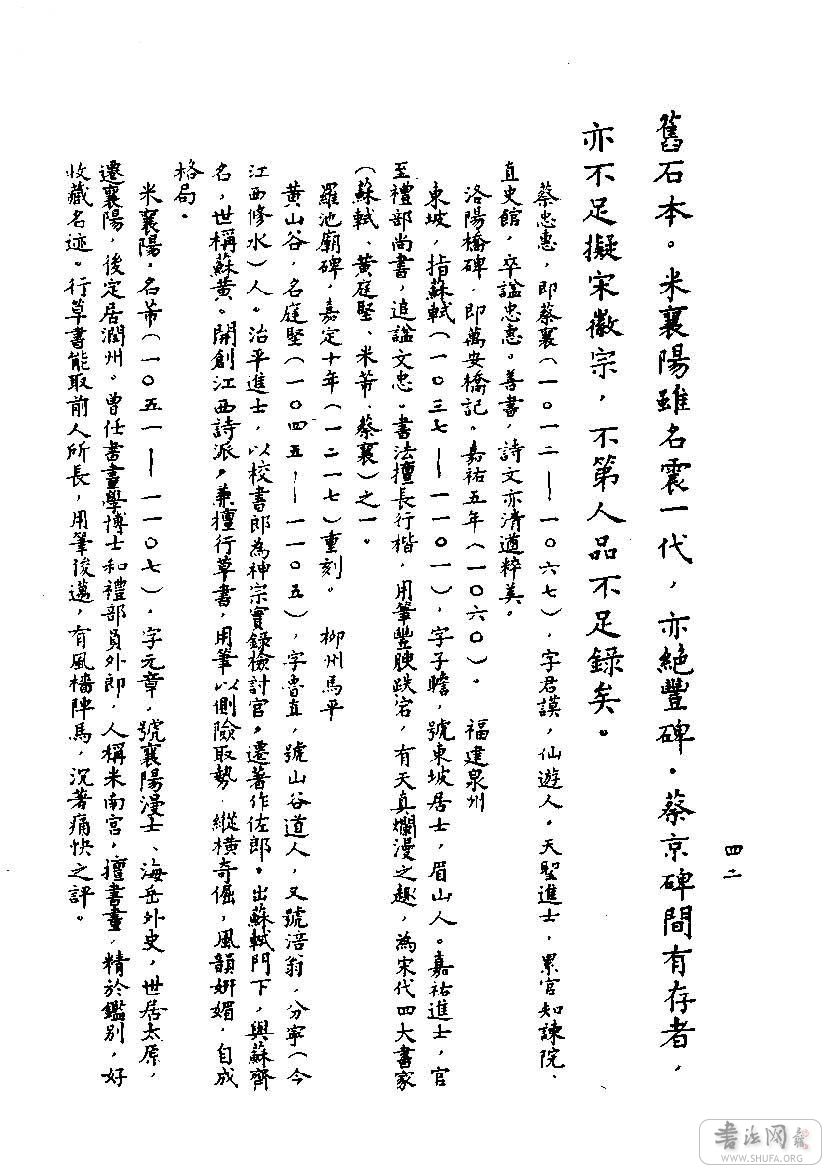 舊石本。米襄陽雖名震一代，亦絕豐碑。蔡京碑間有存者，
亦不足擬宋徽宗，不第人品不足錄矣。
蔡忠惠，即蔡襄（一〇一二——一〇六七），字君謨，仙遊人。天聖進士，累官知諫院、
直史館，卒謚忠惠。善書，詩文亦清遒粹美。
洛陽橋碑，即萬安橋記。嘉祐五年（一〇六〇）。 福建泉州
東坡，指蘇軾（一〇三七——一一〇一），字子瞻，號東坡居士，眉山人。嘉祐進士，官
至禮部尚書，追謚文忠。書法擅長行楷，用筆豐腴跌宕，有天真爛漫之趣，為宋代四大書家
（蘇軾、黃庭堅、米芾、蔡襄）之一。
羅池廟碑，嘉定十年（一二一七）重刻。 柳州馬平
黃山谷，名庭堅（一〇四五——一一〇五），字魯直，號山谷道人，又號涪翁，分寧（今
江西修水）人。治平進士，以校書郎為神宗實錄檢討官，遷著作佐郎。出蘇軾門下，與蘇齊
名，世稱蘇黃。開創江西詩派。兼擅行草書，用筆以側險取勢，縱橫奇倔，風韻妍媚，自成
格局。
米襄陽，名芾（一〇五一——一一〇七），字元章，號襄陽漫士、海岳外史，世居太原，
遷襄陽，後定居潤州。曾任書畫學博士和禮部員外郎，人稱米南宮，擅書畫，精於鑑別，好
收藏名迹。行草書能取前人所長，用筆俊邁，有風檣陣馬，沉著痛快之評。
四二
书法网
WWW.SHUFA.ORG